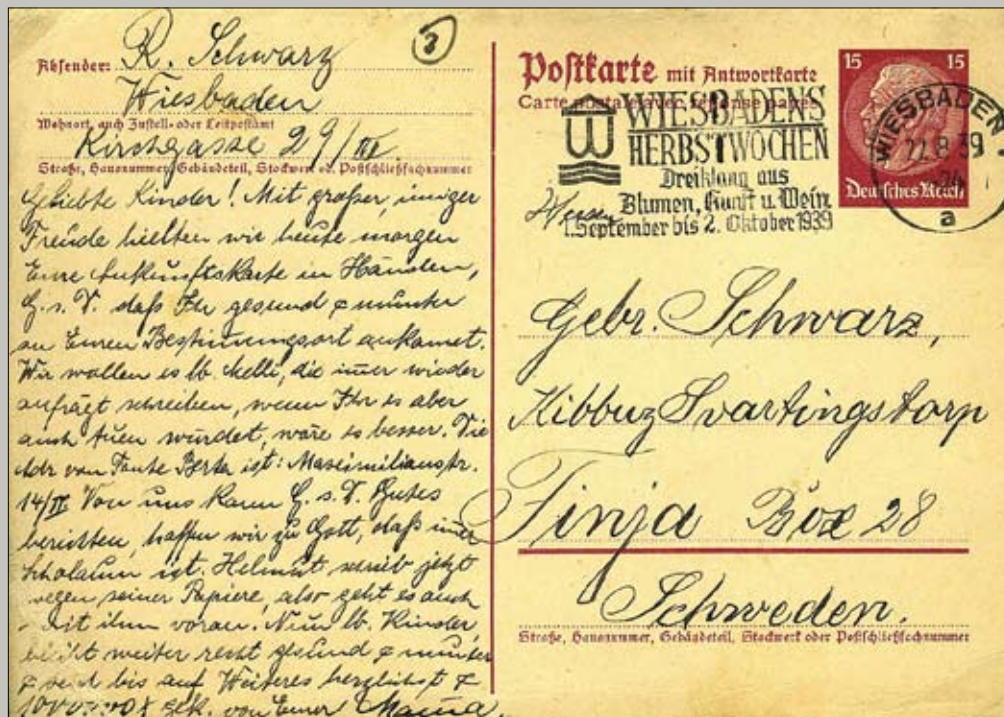 Absender: R. Schwarz
Wiesbaden
Wohnort, auch Zustell- oder Leitpostamt
Kirchgasse 29/III
Straße, Hausnummer, Gebäudeteil, Stockwerk od. Postschließfachnummer
Geliebte Kinder! Mit großer, inniger
Freude hielten wir heute morgen
Eure Ankunftskarte in Händen,
G. s. D. daß Ihr gesund & munter
an Euren Bestimmungsort ankamet.
Wir wollen es lb. Melli, die immer wieder
anfrägt schreiben, wenn Ihr es aber
auch tuen würdet, wäre es besser. Die
Adr von Tante Berta ist: Maximilianstr.
14/II Von uns kann G. s. D. Gutes
berichten, hoffen wir zu Gott, daß
ist. Helmut schrieb jetzt
wegen seiner Papiere, also geht es auch
mit ihm voran. Nun lb. Kinder
bleibt weiter recht gesund & munter
& seid bis auf Weiteres herzlichst &
gek. von Eurer Mama.
2
Postkarte mit Antwortkarte
Carte postale avec réponse payée
WIESBADENS
HERBSTWOCHEN
Dreiklang aus
Blumen, Kunst u. Wein
1. September bis 2. Oktober 1939
15 15
Deutsches Reich
WIESBADEN
22.8.39
a
Gebr. Schwarz,
Kibbuz Svartingstorp
Tinja Box 28
Schweden.
Straße, Hausnummer, Gebäudeteil, Stockwerk oder Postschließfachnummer